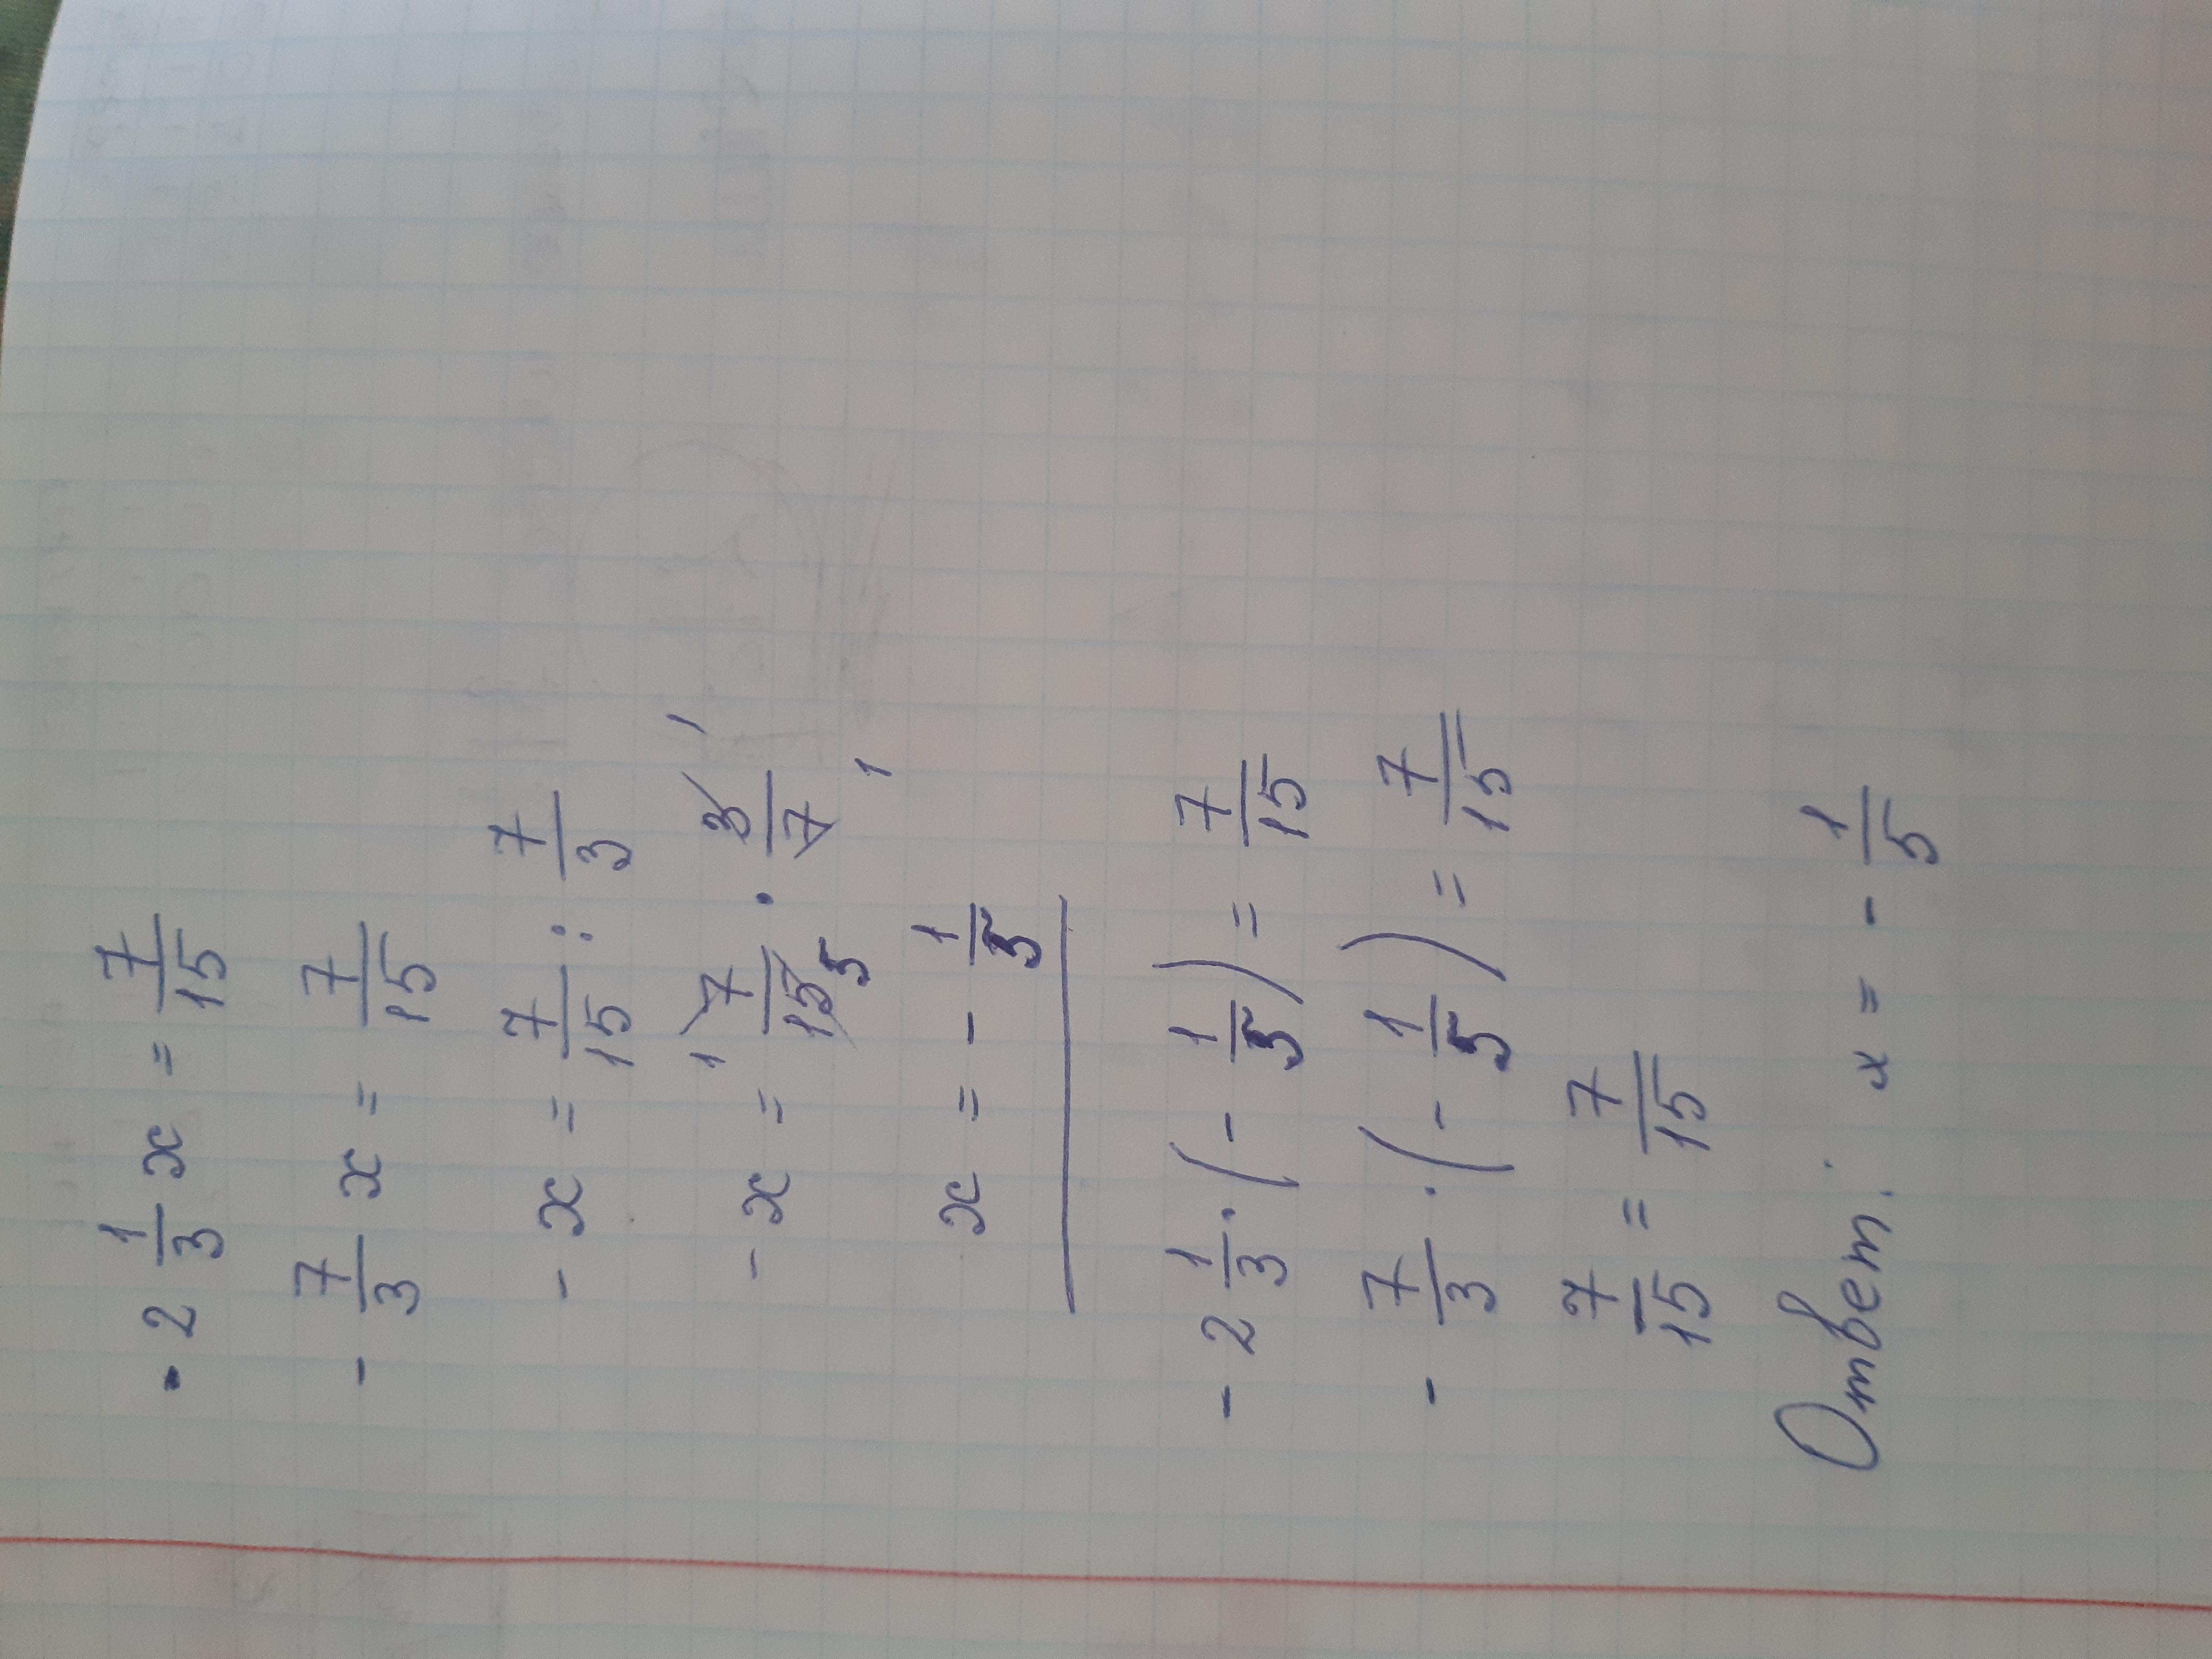 - 2 1/3 x = 7/15
- 7/3 x = 7/15
- x = 7/15 : 7/3
- x = 1 7/15 5 · 3/7 1 1
x = - 1/5
- 2 1/3 · (- 1/5) = 7/15
- 7/3 · (- 1/5) = 7/15
7/15 = 7/15
Ответ: x = - 1/5